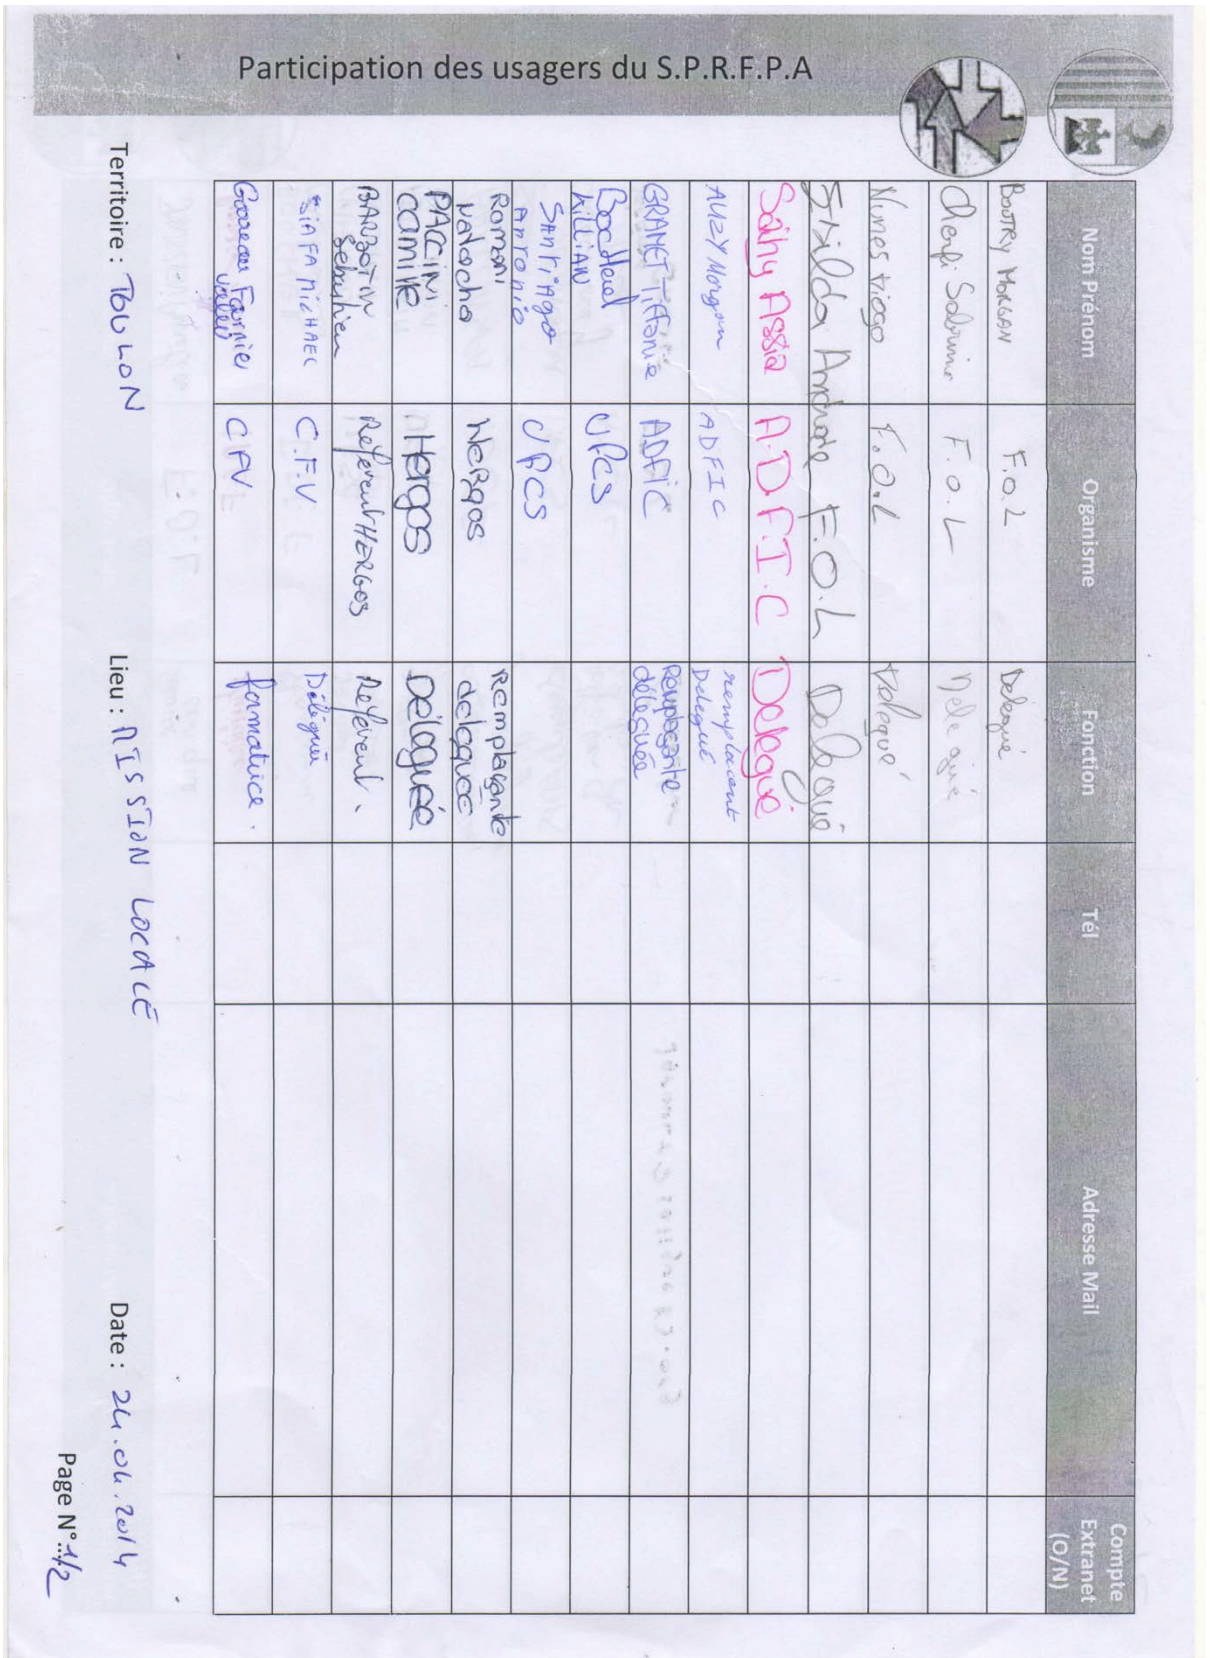 Participation des usagers du S.P.R.F.P.A
Nom Prénom Organisme Fonction Tél Adresse Mail Compte Extranet (O/N)
BOOTRY MORGAN F.O.L Délegué
Cherfi Sabrina F.O.L Délegué
Nunes tiago F.O.L Délegué
Andrade F.O.L Delegué
Saihy Assia A.D.F.I.C Delegué
AUZY Morgan ADFIC remplacant Delegué
GRANET Tiffanie ADFIC Remplaçante déléguée
killiAN UPCS
SANTiAgo Antonio UPCS
Romani Natacha HERgos Remplaçante deleguée
PACCINI Camille Hergos Déléguée
BARBOTIN Sébastien Référent HERGOS Référent.
SIAFA MICHAEL C.F.V Délégué
Fournier CFV formatrice.
Territoire : TOULON Lieu : MISSION LOCALE Date : 24.04.2014
Page N° 1/2